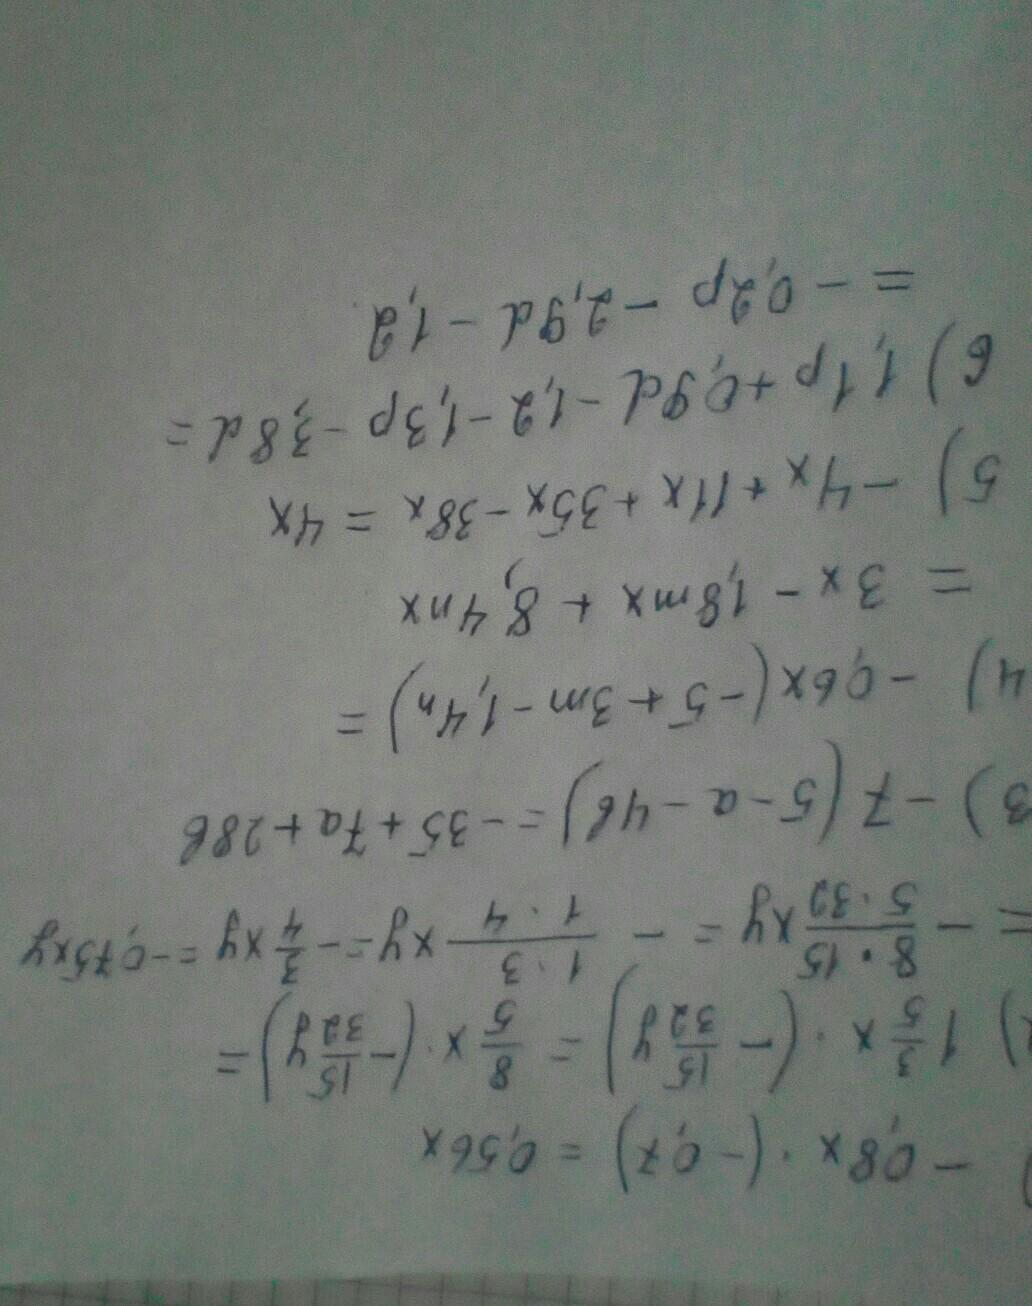 ) - 0,8x · (-0,7) = 0,56x
) 1 3/5 x · (- 15/32 y) = 8/5 x · (- 15/32 y) =
= - 8·15/5·32 xy = - 1·3/1·4 xy = - 3/4 xy = -0,75xy
3) -7 (5-a-4b) = -35+7a+28b
4) -0,6x (-5+3m-1,4n) =
= 3x - 1,8mx + 8,4nx
5) -4x + 11x + 35x - 38x = 4x
6) 1,1p + 0,9d - 1,2 - 1,3p - 3,8d =
= - 0,2p - 2,9d - 1,2